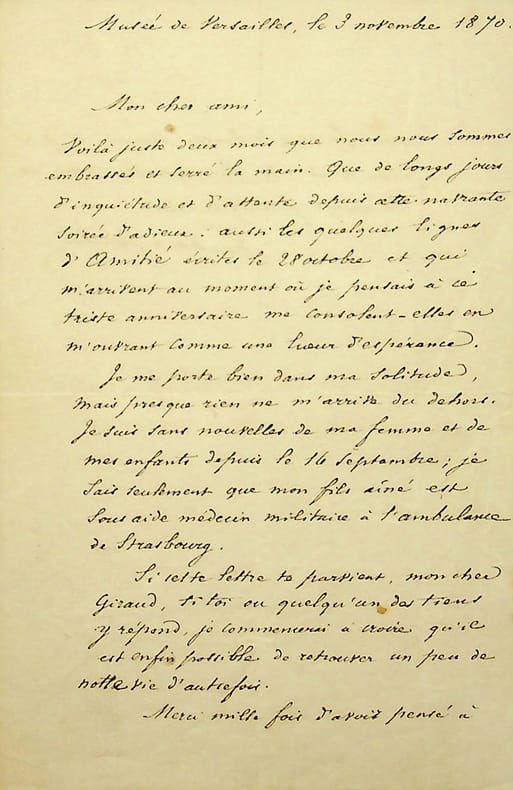 Musée de Versailles, le 3 novembre 1870.
Mon cher ami,
Voilà juste deux mois que nous nous sommes
embrassés et serré la main. Que de longs jours
d'inquiétude et d'attente depuis cette navrante
soirée d'adieux : aussi les quelques lignes
d'Amitié écrites le 28 octobre et qui
m'arrivent au moment où je pensais à ce
triste anniversaire me consolent-elles en
m'ouvrant comme une lueur d'espérance.
Je me porte bien dans ma solitude,
mais presque rien ne m'arrive du dehors.
Je suis sans nouvelles de ma femme et de
mes enfants depuis le 16 septembre ; je
sais seulement que mon fils aîné est
sous aide médecin militaire à l'ambulance
de Strasbourg.
Si cette lettre te parvient, mon cher
Giraud, si toi ou quelqu'un des tiens
y répond, je commencerai à croire qu'il
est enfin possible de retrouver un peu de
notre vie d'autrefois.
Merci mille fois d'avoir pensé à